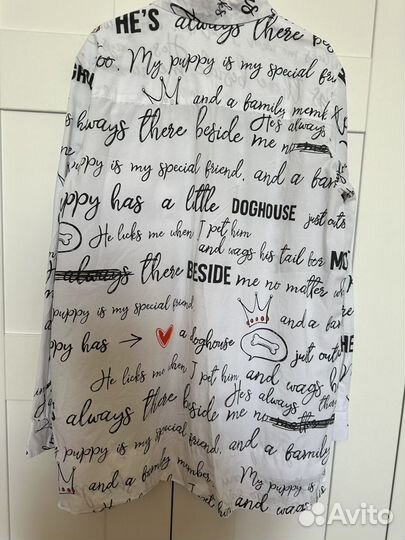 HE'S always there besi
too. My puppy is my special fri
and a family memb
always there beside me no
He's always
puppy is my special friend, and a fam
ppy has a little DOGHOUSE just outs
He licks me when I pet him
and wags his tail MO
always there BESIDE me no matter
puppy is my special friend
and a fa
ppy has → a doghouse just out HE
He licks me when I pet him, and wags
He's always
always there beside me no
puppy is my special friend, and a family
and a family member
My puppy is
I pet him and wags his
Avito